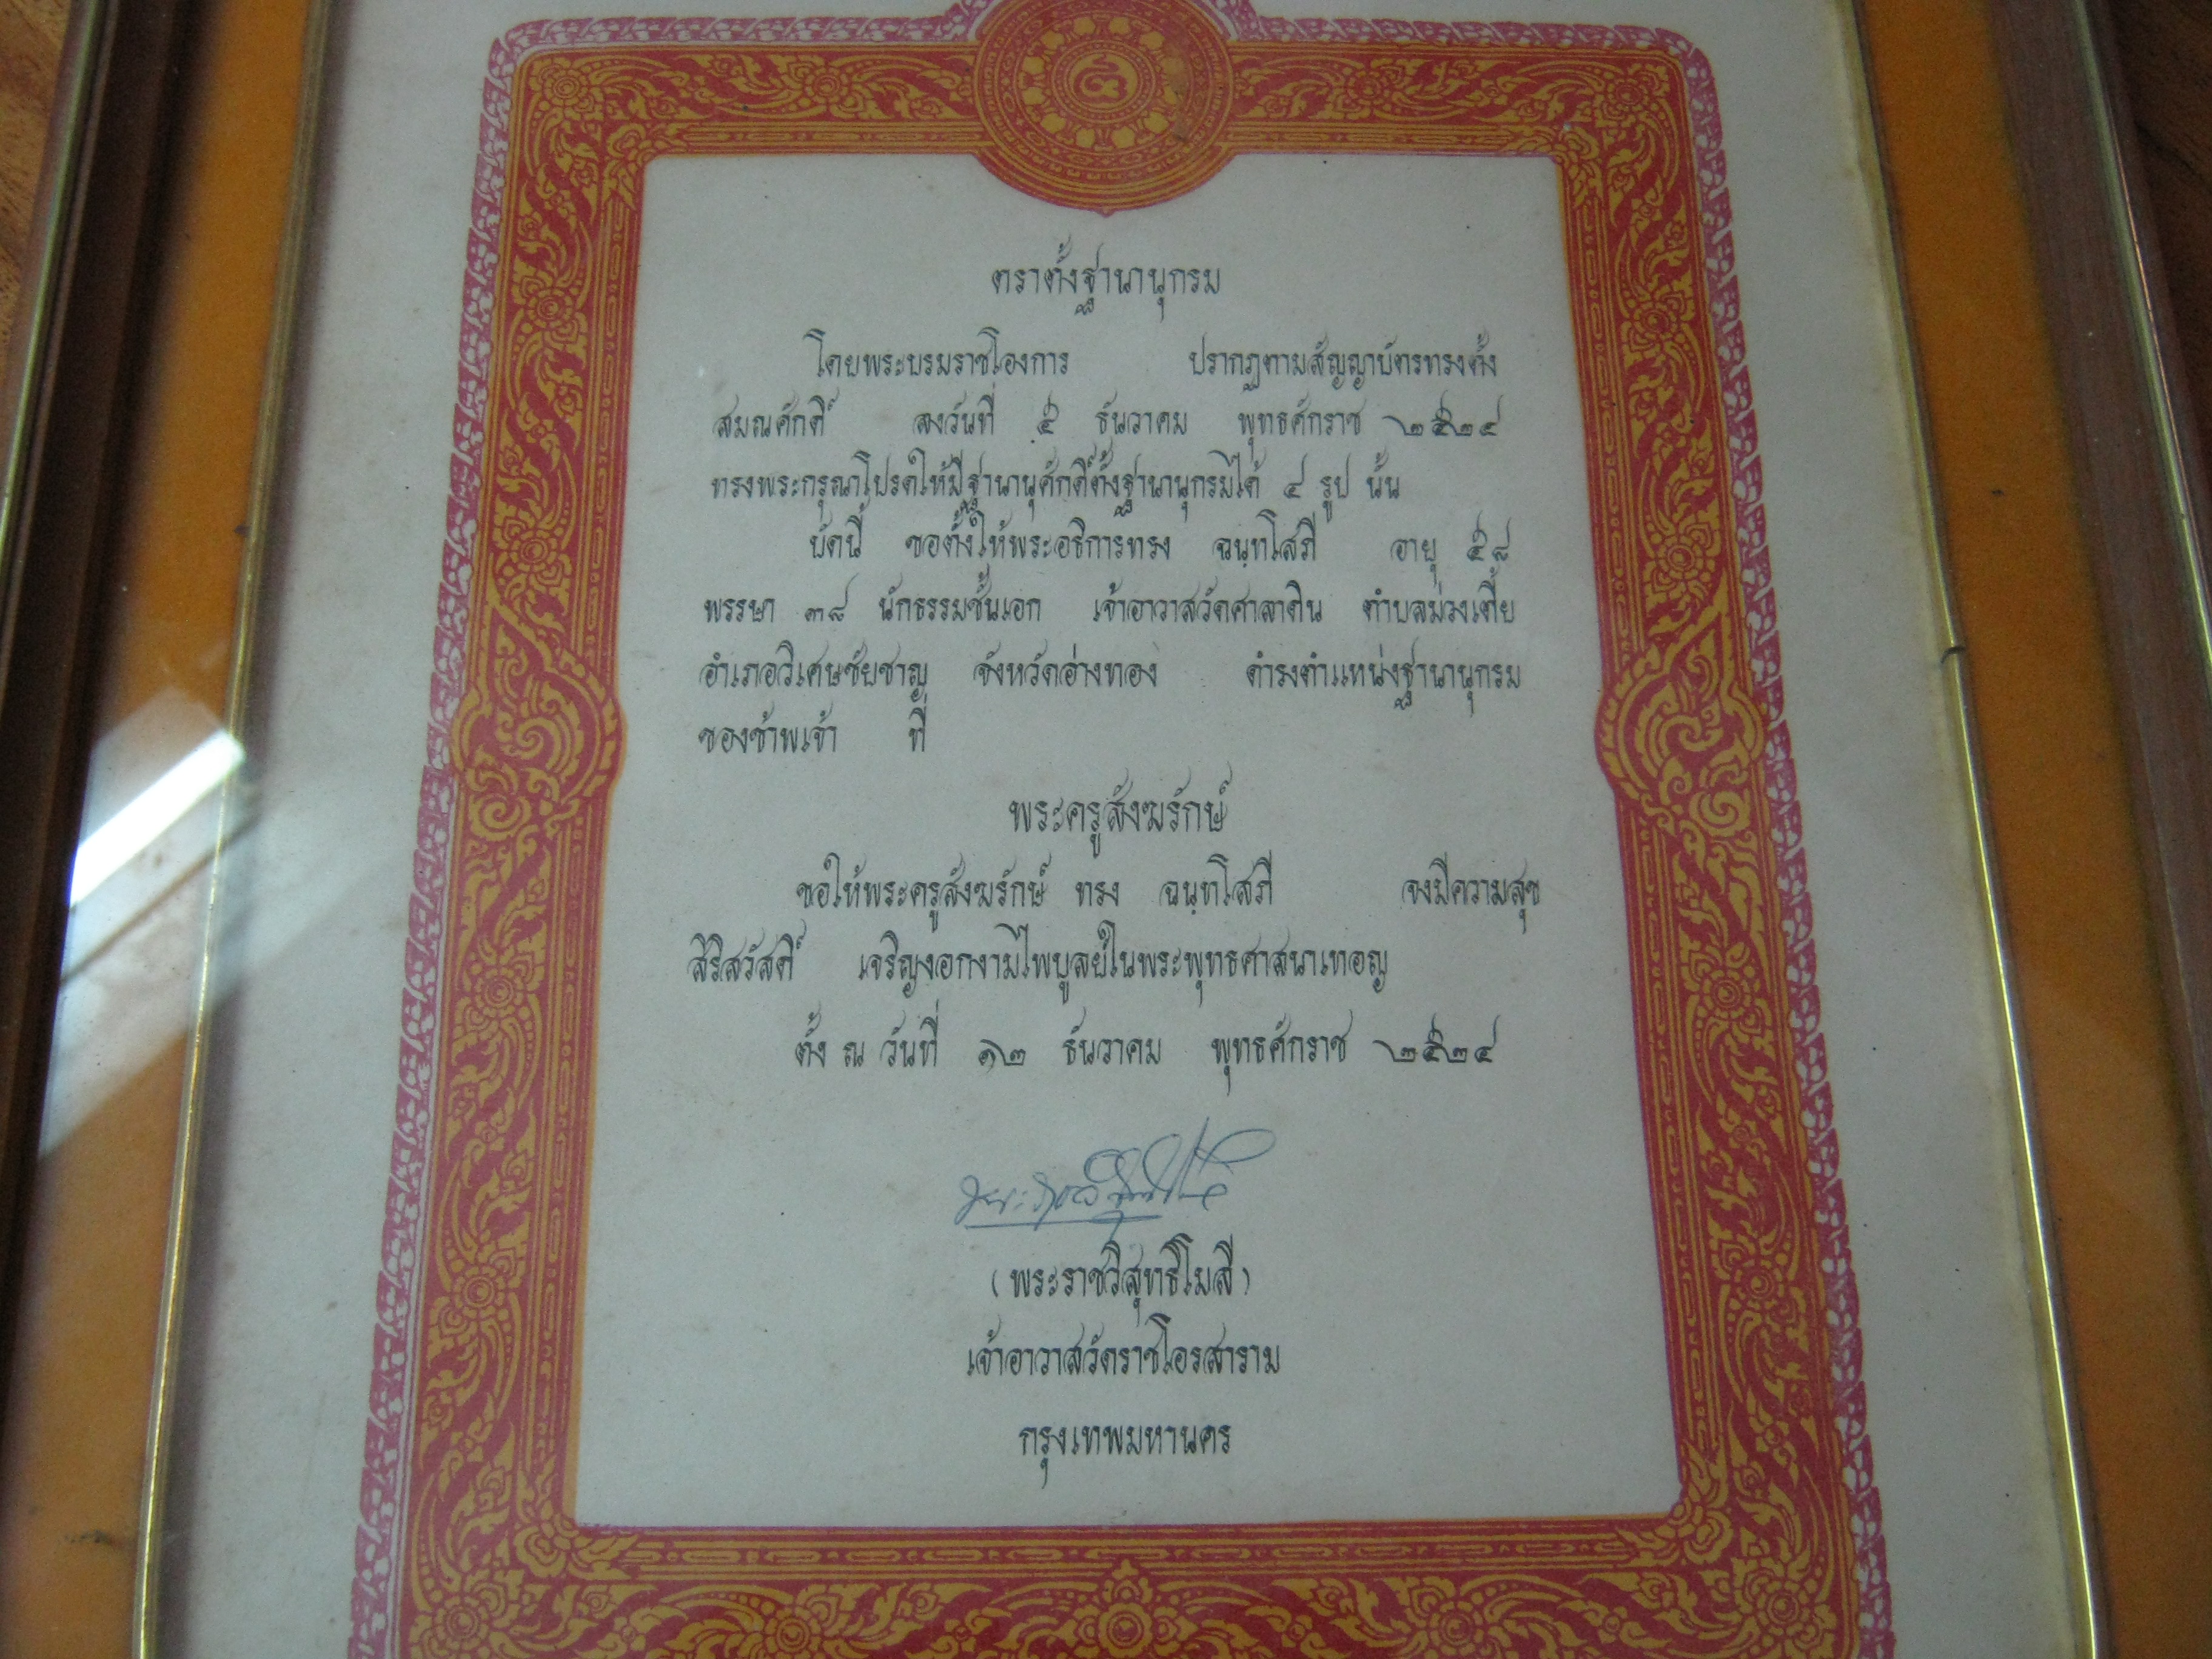 ตราตั้งฐานานุกรม
โดยพระบรมราชโองการ ปรากฏตามสัญญาบัตรทรงตั้ง
สมณศักดิ์ ลงวันที่ ๕ ธันวาคม พุทธศักราช ๒๕๒๔
ทรงพระกรุณาโปรดให้มีฐานานุศักดิ์ตั้งฐานานุกรมได้ ๔ รูป นั้น
บัดนี้ ขอตั้งให้พระอธิการทรง ฉนฺทโสภี อายุ ๕๘
พรรษา ๓๘ นักธรรมชั้นเอก เจ้าอาวาสวัดศาลาดิน ตำบลม่วงเตี้ย
อำเภอวิเศษชัยชาญ จังหวัดอ่างทอง ดำรงตำแหน่งฐานานุกรม
ของข้าพเจ้า ที่
พระครูสังฆรักษ์
ขอให้พระครูสังฆรักษ์ ทรง ฉนฺทโสภี จงมีความสุข
สิริสวัสดิ์ เจริญงอกงามไพบูลย์ในพระพุทธศาสนาเทอญ
ตั้ง ณ วันที่ ๑๒ ธันวาคม พุทธศักราช ๒๕๒๔
(พระราชวิสุทธิโมลี)
เจ้าอาวาสวัดราชโอรสาราม
กรุงเทพมหานคร